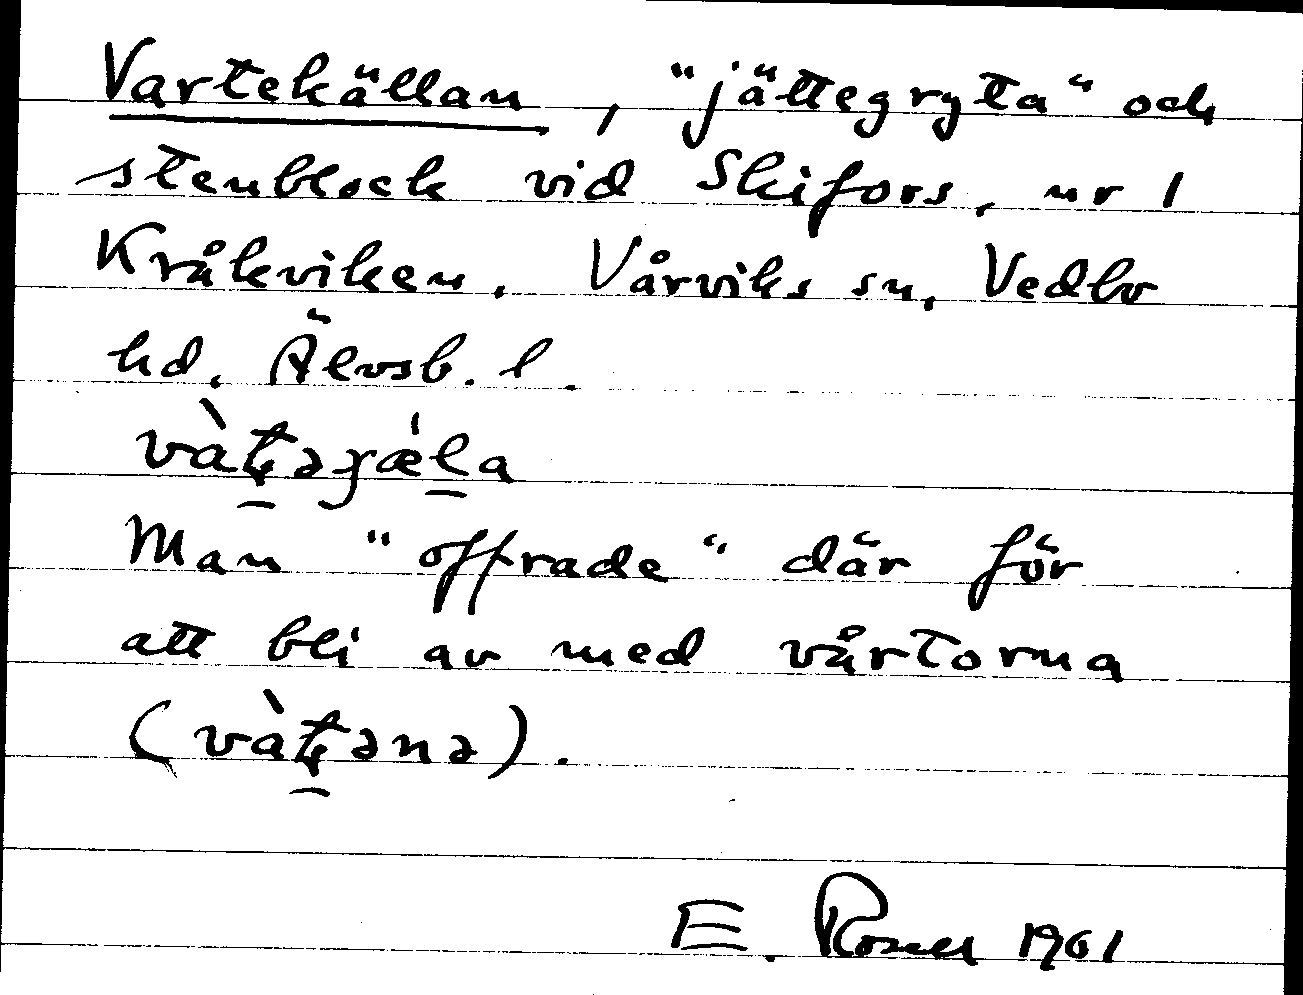 Vartekällan, "jättegryta" och
stenblock vid Skifors, nr 1
Kråkviken. Vårviks sn, Vedbo
hd. Älvsb. l.
vàʈəɣæ̀la
Man "offrade" där för
att bli av med vårtorna
(vàʈənə).
E. 1961